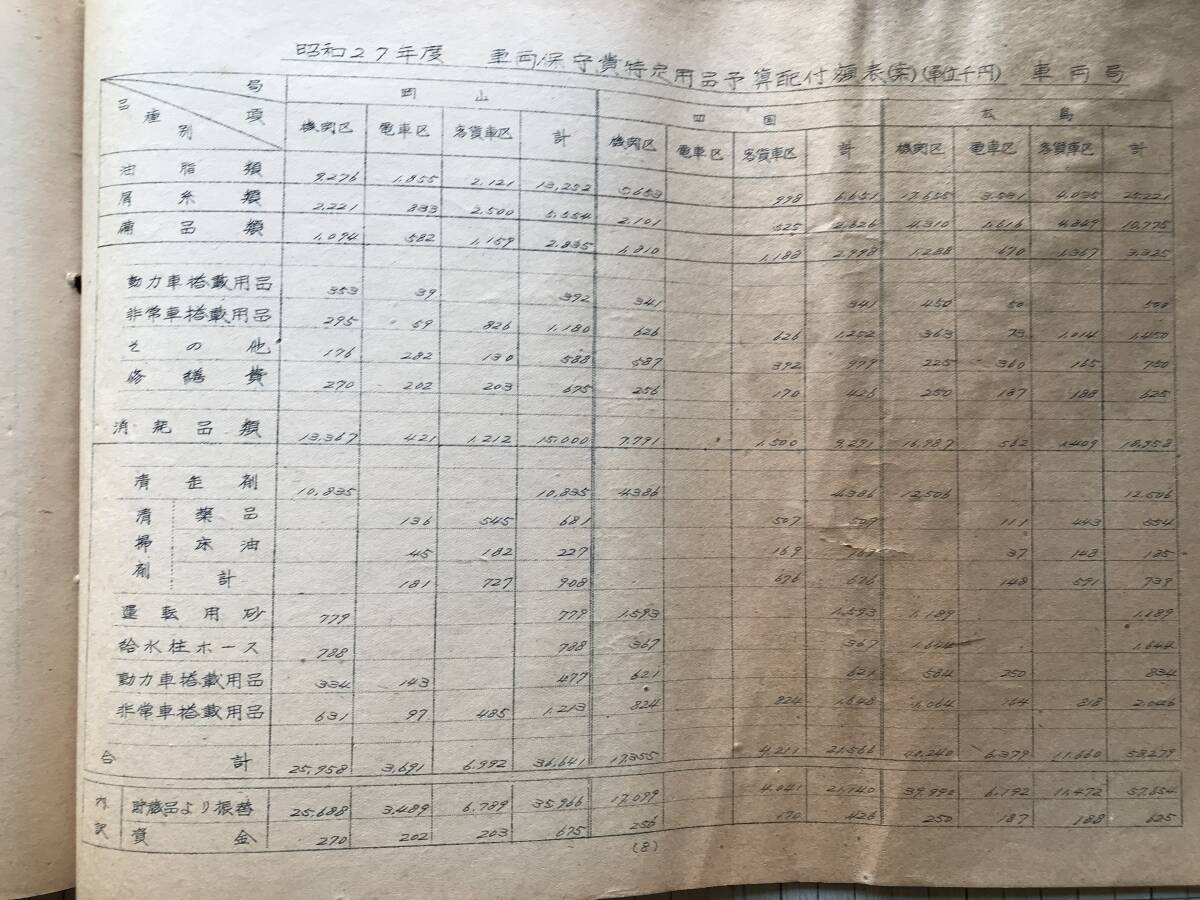 昭和27年度 車両保守費特定用品予算配付額表(案)(単位千円) 車両局
局 岡山 四国 広島
品種別 項 機関区 電車区 客貨車区 計 機関区 電車区 客貨車区 計 機関区 電車区 客貨車区 計
油脂類 9,276 1,855 2,121 13,252 5,653 998 6,651 17,655 3,531 4,035 25,221
屑糸類 2,221 833 2,500 5,554 2,101 525 2,626 4,310 1,616 4,849 10,775
備品類 1,094 582 1,159 2,835 1,810 1,188 2,998 1,288 670 1,367 3,325
動力車搭載用品 353 39 392 341 341 450 50 500
非常車搭載用品 295 59 826 1,180 626 626 1,252 363 73 1,014 1,450
その他 176 282 130 588 587 392 979 225 360 165 750
修繕費 270 202 203 675 256 170 426 250 187 188 625
消耗品類 13,367 421 1,212 15,000 7,791 1,500 9,291 16,987 562 1,409 18,958
清缶剤 10,835 10,835 4386 4386 12,506 12,506
清掃剤 薬品 136 545 681 507 111 443 554
床油 45 182 227 169 37 148 185
計 181 727 908 676 676 148 591 739
運転用砂 779 779 1,593 1,593
給水柱ホース 788 788 367 367 1,644 1,644
動力車搭載用品 334 143 477 621 621 584 250 834
非常車搭載用品 631 97 485 1,213 824 824 1,648 1,064 164 818 2,046
合計 25,958 3,691 6,992 36,641 17,355 4,211 21,566 40,240 6,379 11,660 58,279
内訳 貯蔵品より振替 25,688 3,489 6,789 35,966 17,099 4,041 39,990 6,192 11,472 57,654
資金 270 202 203 675 256 170 426 250 187 188 625
(8)